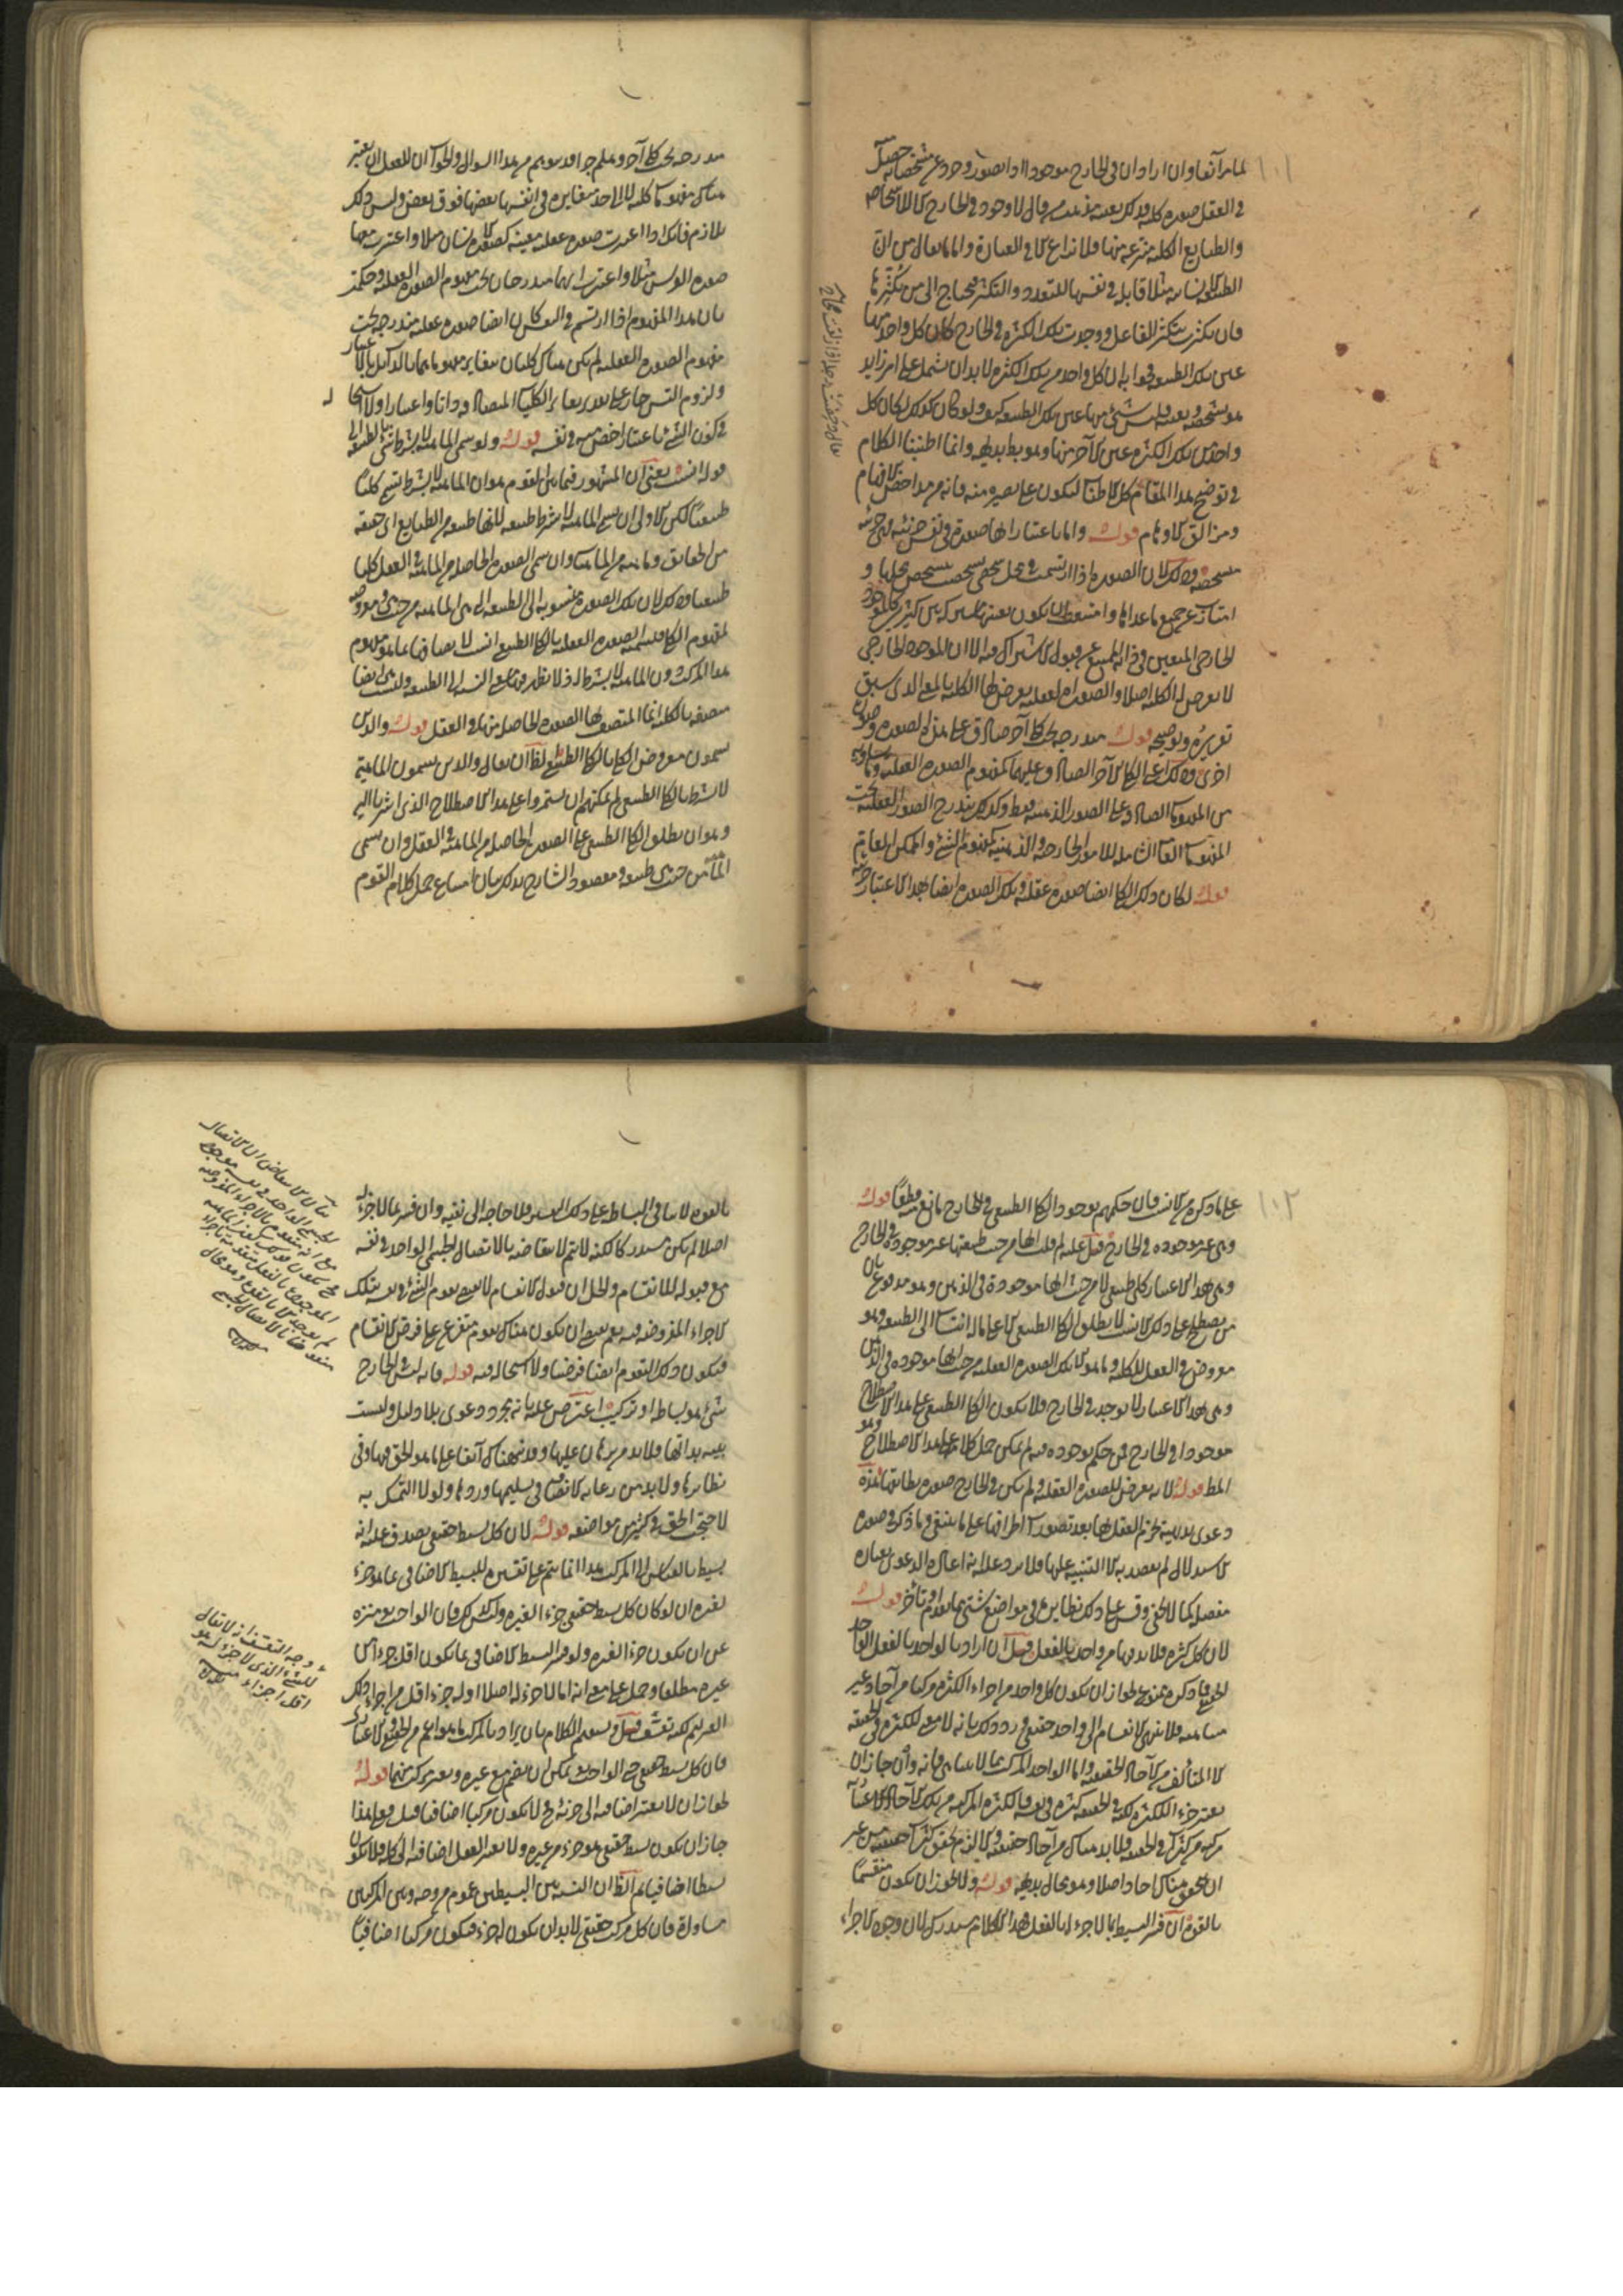 ١٠١
لما مر آنفا وان اراد ان في الخارج موجودا اذا تصور وجرد عن مشخصاته حصل
في العقل صورة كلية فذلك بعينه مذهب من قال لا وجود في الخارج الا للاشخاص
والطبايع الكلية منتزعة منها فلا نزاع الا في العبارة واما ما يقال من ان
الطبيعة الانسانية مثلا قابلة في نفسها للتعدد والتكثر فيحتاج الى من يكثرها
فان تكثرت بتكثير الفاعل ووجدت تلك الكثرة في الخارج كان كل واحد منها
عين تلك الطبيعة فجوابه ان كل واحد من تلك الكثرة لا بد ان يشتمل على امر زايد
هو تشخصه وتعينه فليس شئ منها عين تلك الطبيعة كيف ولو كان كذلك لكان كل
واحد من تلك الكثرة عين الآخر منها وهو بط بديهة وانما اطنبنا الكلام
في توضيح هذا المقام كل الاطناب لتكون على بصيرة منه فانه من مداحض الافهام
ومزالق الاوهام قوله واما باعتبار انها صورة في نفس جزئية فهي جزئية
متشخصة وذلك لان الصورة اذا ارتسمت في محل شخصي تشخصت بتشخص محلها و
امتازت عن جميع ما عداها وامتنعت ان يكون بعينها مشتركة بين كثيرين كالموجود
الخارجي المتعين في ذاته الممتنع عن قبول الاشتراك فيه الا ان الموجود الخارجي
لا يعرض له الكلية اصلا والصورة العقلية يعرض لها الكلية بالمعنى الذي سبق
تقريره وتوضيحه قوله مندرجة تحت كلي آخر صادق على هذه الصورة وصورة
اخرى وذلك الكلي الآخر الصادق عليها كمفهوم الصورة العقلية وما يساويه
من المفهومات الصادقة على الصور الذهنية فقط وكذلك يندرج الصور العقلية تحت
المفهومات العامة الشاملة للامور الخارجية والذهنية كمفهوم الشئ والممكن العام
قوله لكان ذلك الكلي ايضا صورة عقلية وتلك الصورة ايضا بهذا الاعتبار جزئية
مندرجة تحت كلي آخر وهلم جرا قد يتوهم من هذا السؤال والجواب ان للعقل ان يعتبر
هناك مفهومات كلية لا الى حد متغايرة في انفسها بعضها فوق بعض وليس ذلك
بلازم فانك اذا اعتبرت صورة عقلية معينة كصورة الانسان مثلا واعتبرت معها
صورة الفرس مثلا واعتبرت انهما مندرجتان تحت مفهوم الصورة العقلية وحكمت
بان هذا المفهوم اذا ارتسم في العقل كان ايضا صورة عقلية مندرجة تحت
مفهوم الصورة العقلية لم يكن هناك كليان متغايران مفهوما بالذات بل بالاعتبار
ولزوم التس جار على تقدير تغاير الكليات المتصاعدة ذاتا واعتبارا ولا استحالة
في كون الشئ باعتبار اخص من نفسه قوله ولو سمى الماهية لا بشرط شئ بالطبيعة الى
قوله انسب يعني ان المشهور فيما بين القوم هو ان الماهية لا بشرط تسمى كليا
طبيعيا لكن الاولى ان يسمى الماهية لا بشرط طبيعة لانها طبيعة من الطبايع اي حقيقة
من الحقايق وماهية من الماهيات وان يسمى الصورة الحاصلة من الماهية في العقل كليا
طبيعيا وذلك لان تلك الصورة منسوبة الى الطبيعة التي هي الماهية من حيث هي ومعروضة
لمفهوم الكلي فتسمية الصورة العقلية بالكلي الطبيعي انسب
متصفة بالكلية انما المتصف بها الصورة الحاصلة منها في العقل قوله والذين
يسمون معروض الكلي بالكلي الطبيعي الظ ان يقال والذين يسمون الماهية
لا بشرط بالكلي الطبيعي لم يمكنهم ان يستمروا على هذا الاصطلاح الذي اشرنا اليه
وهو ان يطلق الكلي الطبيعي على الصورة الحاصلة من الماهية في العقل وان يسمى
الماهية من حيث هي طبيعة ومقصود الشارح بذلك بيان امتناع حمل كلام القوم
١٠٢
على ما ذكره من الانسب فان حكمهم بوجود الكلي الطبيعي في الخارج مانع منه قطعا قوله
وهي غير موجودة في الخارج قيل عليه لم قلت انها من حيث طبيعتها غير موجودة في الخارج
وهي بهذا الاعتبار كلي طبيعي لا من حيث انها موجودة في الذهن وهو مدفوع بان
من يصطلح على ذلك الانسب لا يطلق الكلي الطبيعي الا على ما له انتساب الى الطبيعة وهو
معروض في العقل للكلية وما هو الا تلك الصورة العقلية من حيث انها موجودة في الذهن
وهي بهذا الاعتبار لا توجد في الخارج فلا يكون الكلي الطبيعي على هذا الاصطلاح
موجودا في الخارج فمن حكم بوجوده فيه لم يمكن حمل كلامه على هذا الاصطلاح وهو
المط قوله لانه يعرض للصورة العقلية ولم يكن في الخارج صورة يطابقها هذه
دعوى بديهية يجزم العقل بها بعد تصورات اطرافها على ما ينبغي وما ذكر في صورة
الاستدلال لم يقصد به الا التنبيه عليها فلا يرد عليه انه اعادة الدعوى بعبارة
مفصلة كما لا يخفى وقس على ذلك نظايرها في مواضع شتى مما تقدم او تأخر قوله
لان كل كثرة فلا بد فيها من واحد بالفعل قيل ان اراد بالواحد بالفعل الواحد
الحقيقي فما ذكره ممنوع لجواز ان يكون كل واحد من اجزاء الكثرة مركبا من آحاد غير
متناهية فلا ينتهي الانقسام الى واحد حقيقي ورد ذلك بانه لا معنى للكثرة في الحقيقة
الا المتألف من الآحاد الحقيقية واما الواحد المركب مما لا يتناهى فانه وان جاز ان
يعتبر جزء الكثرة لكنه في الحقيقة كثرة في نفسه فالكثرة المركبة من تلك الآحاد الاعتبارية
مركبة من كثرات في الحقيقة ولا بد هناك من آحاد حقيقية والا لزم تحقق كثرات حقيقية من غير
ان يتحقق هناك آحاد اصلا وهو محال بديهة قوله ولا يجوز ان يكون منقسما
بالقوة ان فسر البسيط بما لا جزء له بالفعل فهذا الكلام مستدرك لان وجود الاجزاء
بالقوة لا ينافي البساطة على ذلك التفسير فلا حاجة الى نفيه وان فسر بما لا جزء له
اصلا لم يكن مستدركا لكنه لا يتم لانتقاضه بالاتصال الجسمي الواحد في نفسه
مع قبوله للانقسام والحل ان قبول الانقسام لا يقتضي تقوم الشئ في نفسه بتلك
الاجزاء المفروضة فيه نعم يقتضي ان يكون هناك تقوم متفرع على فرض الانقسام
فيكون ذلك التقوم ايضا فرضيا ولا استحالة فيه قوله فانه ليس في الخارج
شئ هو بساطة او تركيب اعترض عليه بانه مجرد دعوى بلا دليل وليست
بينة بذاتها فلا بد من برهان عليها وقد نبهناك آنفا على ما هو الحق فيها وفي
نظايرها ولا بد من رعاية الانصاف في تسليمها وردها ولولا التمسك به
لاحتجب الحق في كثير من مواضعه قوله لان كل بسيط حقيقي يصدق عليه انه
بسيط بالقياس الى المركب هذا انما يتم على تفسير البسيط الاضافي بما هو جزء
لغيره ان لو كان كل بسيط حقيقي جزءا لغيره وليس كذلك فان الواجب تع منزه
عن ان يكون جزءا لغيره ولو فسر البسيط الاضافي بما يكون اقل جزءا من
غيره مطلقا وحمل على معنى انه اما لا جزء له اصلا او له جزء اقل من اجزاء ذلك
الغير تم لكنه تعسف قيل ويتم الكلام بان يراد بالمركب ما هو اعم من الحقيقي والاعتباري
فان كل بسيط حقيقي حتى الواجب تع يمكن ان يضم مع غيره ويعتبر مركب منهما قوله
لجواز ان لا يعتبر اضافته الى جزئه فلا يكون مركبا اضافيا قيل فعلى هذا
جاز ان يكون بسيط حقيقي هو جزء من غيره ولا يعتبر العقل اضافته الى كله فلا يكون
بسيطا اضافيا ثم الظ ان النسبة بين البسيطين عموم من وجه وبين المركبين
مساواة فان كل مركب حقيقي لا بد ان يكون له جزء فيكون مركبا اضافيا
وجه التعسف ان لا يقال
للشئ الذي لا جزء له هو
اقل اجزاء منه